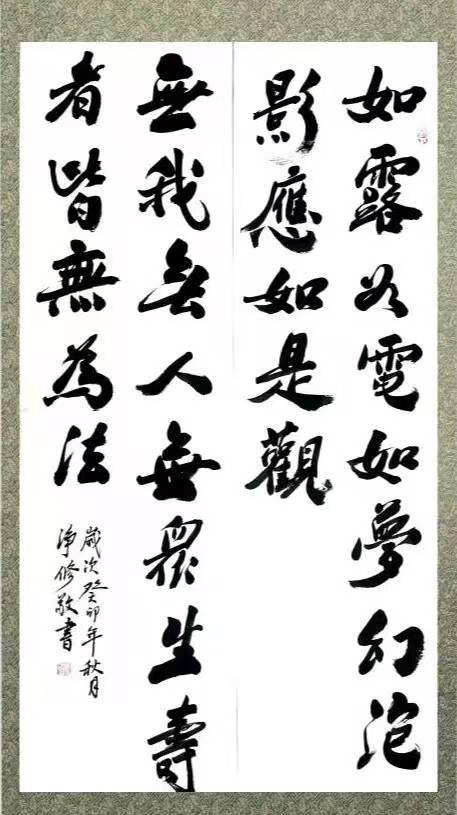 如露如電如夢幻泡
影應如是觀
無我無人無眾生壽
者皆無為法
歲次癸卯年秋月
淨修敬書